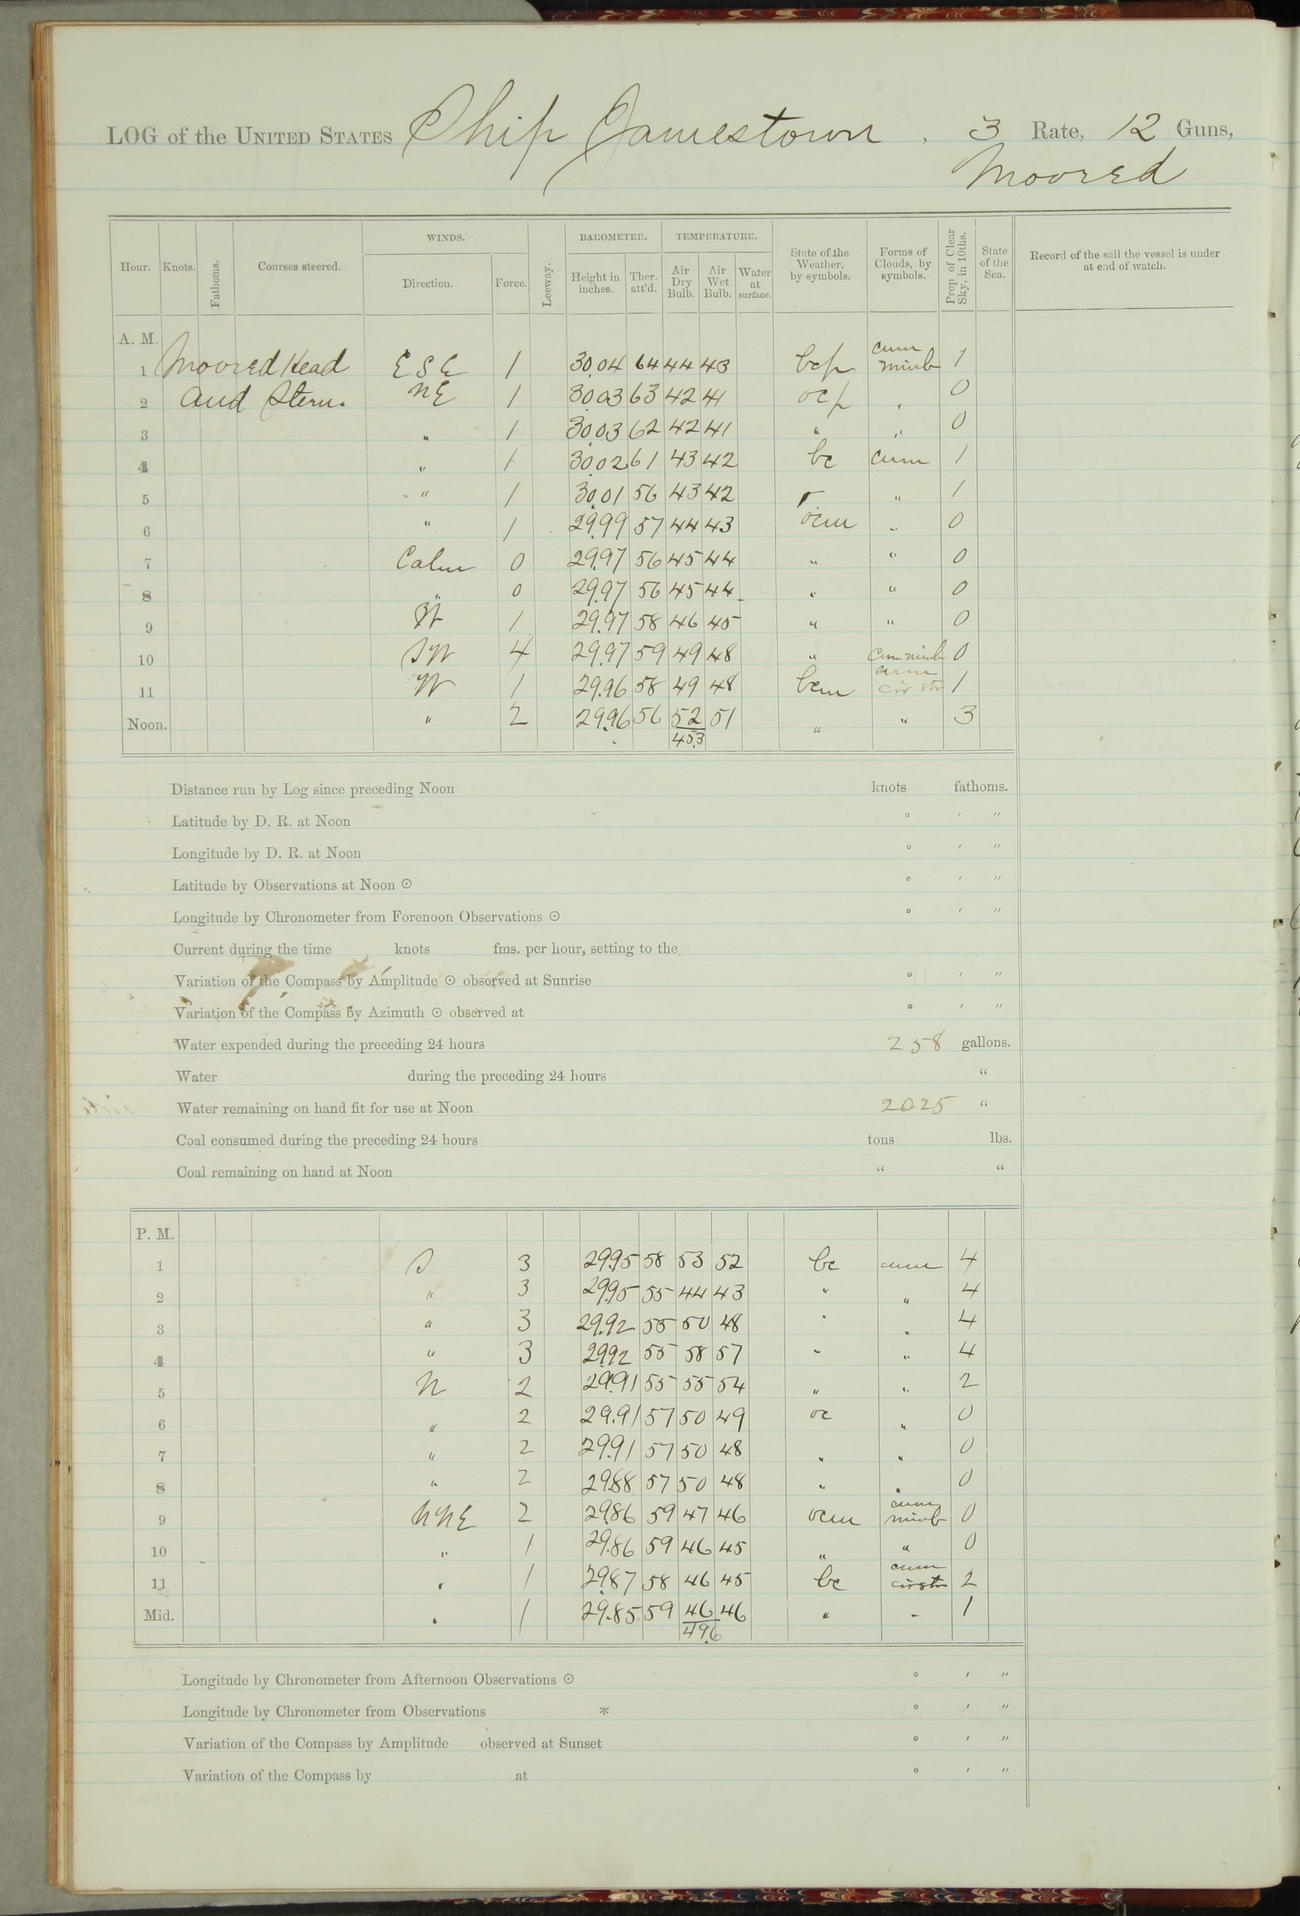 LOG of the UNITED STATES Ship Jamestown . 3 Rate, 12 Guns,
Moored
Hour. Knots. Fathoms. Courses steered. WINDS. Direction. Force. Leeway. BAROMETER. Height in inches. Ther. att'd. TEMPERATURE. Air Dry Bulb. Air Wet Bulb. Water at surface. State of the Weather, by symbols. Forms of Clouds, by symbols. Prop. of Clear Sky, in 10ths. State of the Sea. Record of the sail the vessel is under at end of watch.
A. M.
1 Moored Head ESE 1 30.04 64 44 43 bcp cum nimb 1
2 and Stern. NE 1 30.03 63 42 41 ocp " 0
3 " 1 30.03 62 42 41 " " 0
4 " 1 30.02 61 43 42 bc cum 1
5 " 1 30.01 56 43 42 " 1
6 " 1 29.99 57 44 43 ocm " 0
7 Calm 0 29.97 56 45 44 " " 0
8 " 0 29.97 56 45 44 " " 0
9 W 1 29.97 58 46 45 " " 0
10 SW 4 29.97 59 49 48 " cum nimb 0
11 W 1 29.96 58 49 48 bcm cum cir str 1
Noon. " 2 29.96 56 52 51 " " 3
45.3
Distance run by Log since preceding Noon knots fathoms.
Latitude by D. R. at Noon ° ′ ″
Longitude by D. R. at Noon ° ′ ″
Latitude by Observations at Noon ☉ ° ′ ″
Longitude by Chronometer from Forenoon Observations ☉ ° ′ ″
Current during the time knots fms. per hour, setting to the
Variation of the Compass by Amplitude ☉ observed at Sunrise ° ′ ″
Variation of the Compass by Azimuth ☉ observed at ° ′ ″
Water expended during the preceding 24 hours 258 gallons.
Water during the preceding 24 hours "
Water remaining on hand fit for use at Noon 2025 "
Coal consumed during the preceding 24 hours tons lbs.
Coal remaining on hand at Noon " "
P. M.
1 S 3 29.95 58 53 52 bc cum 4
2 " 3 29.95 55 44 43 " " 4
3 " 3 29.92 55 50 48 " " 4
4 " 3 29.92 55 58 57 " " 4
5 N 2 29.91 55 55 54 " " 2
6 " 2 29.91 57 50 49 oc " 0
7 " 2 29.91 57 50 48 " " 0
8 " 2 29.88 57 50 48 " " 0
9 NNE 2 29.86 59 47 46 ocm cum nimb 0
10 " 1 29.86 59 46 45 " " 0
11 " 1 29.87 58 46 45 bc cum cir str 2
Mid. " 1 29.85 59 46 46 " " 1
49.6
Longitude by Chronometer from Afternoon Observations ☉ ° ′ ″
Longitude by Chronometer from Observations * ° ′ ″
Variation of the Compass by Amplitude observed at Sunset ° ′ ″
Variation of the Compass by at ° ′ ″